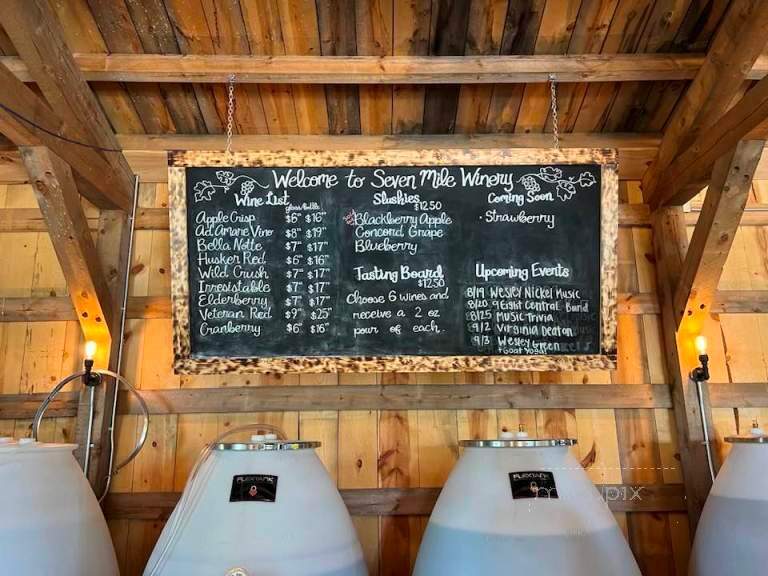 Welcome to Seven Mile Winery
Wine List
glass/bottle
Apple Crisp $6⁰⁰ $16⁰⁰
Ad Amare Vino $8⁰⁰ $19⁰⁰
Bella Notte $7⁰⁰ $17⁰⁰
Husker Red $6⁰⁰ $16⁰⁰
Wild Crush $7⁰⁰ $17⁰⁰
Irresistable $7⁰⁰ $17⁰⁰
Elderberry $7⁰⁰ $17⁰⁰
Veteran Red $9⁰⁰ $25⁰⁰
Cranberry $6⁰⁰ $16⁰⁰
Slushies
$12.50
Blackberry Apple
Concord Grape
Blueberry
Tasting Board
$12.50
Choose 6 wines and
receive a 2 oz
pour of each.
Coming Soon
· Strawberry
Upcoming Events
8/19 Wesley Nickel Music
8/20 Central Band
8/25 Music Trivia
9/2 Virginia Deaton
9/3 Wesley Green
+ Goat Yoga
FLEXTANK
FLEXTANK